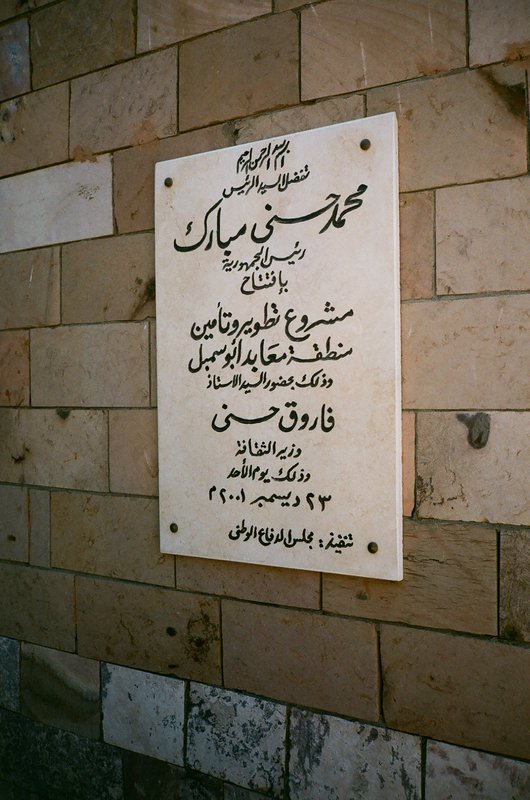 بسم الله الرحمن الرحيم
تفضل السيد الرئيس
محمد حسنى مبارك
رئيس الجمهورية
بإفتتاح
مشروع تطوير وتأمين
منطقة معابد أبو سمبل
وذلك بحضور السيد الاستاذ
فاروق حسنى
وزير الثقافة
وذلك يوم الأحد
٢٣ ديسمبر ٢٠٠١ م
تنفيذ : مجلس الدفاع الوطنى